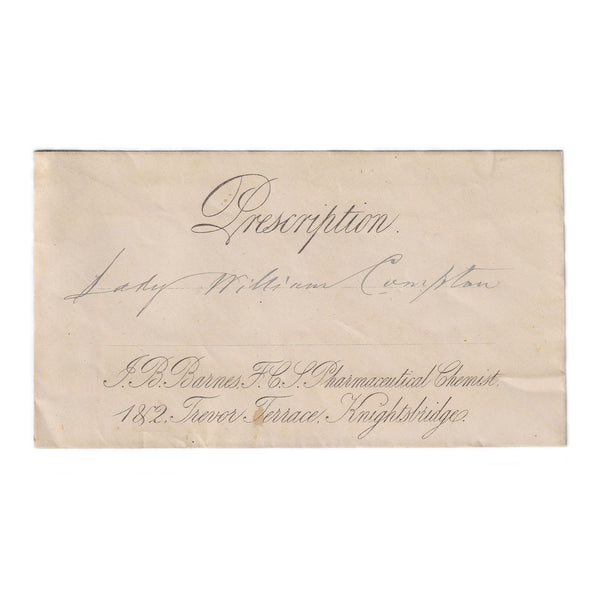 Prescription.
Lady William Compton
J. B. Barnes, F.C.S. Pharmaceutical Chemist.
1&2. Trevor Terrace, Knightsbridge.